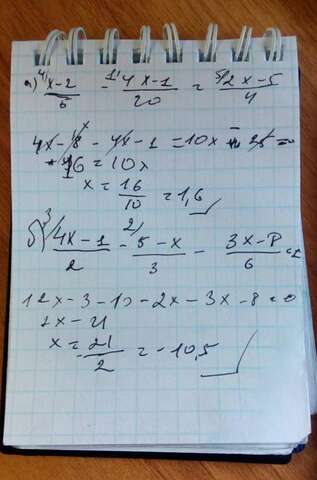 а) 4\ x-2/5 - 1\ 4x-1/20 = 5\ 2x-5/4
4x-8 - 4x-1 = 10x - 25 = 0
16 = 10x
x = 16/10 = 1,6
б) 3\ 4x-1/2 - 2\ 5-x/3 - 3x-8/6 =
12x-3-10-2x-3x-8=0
2x-21
x = 21/2 = -10,5